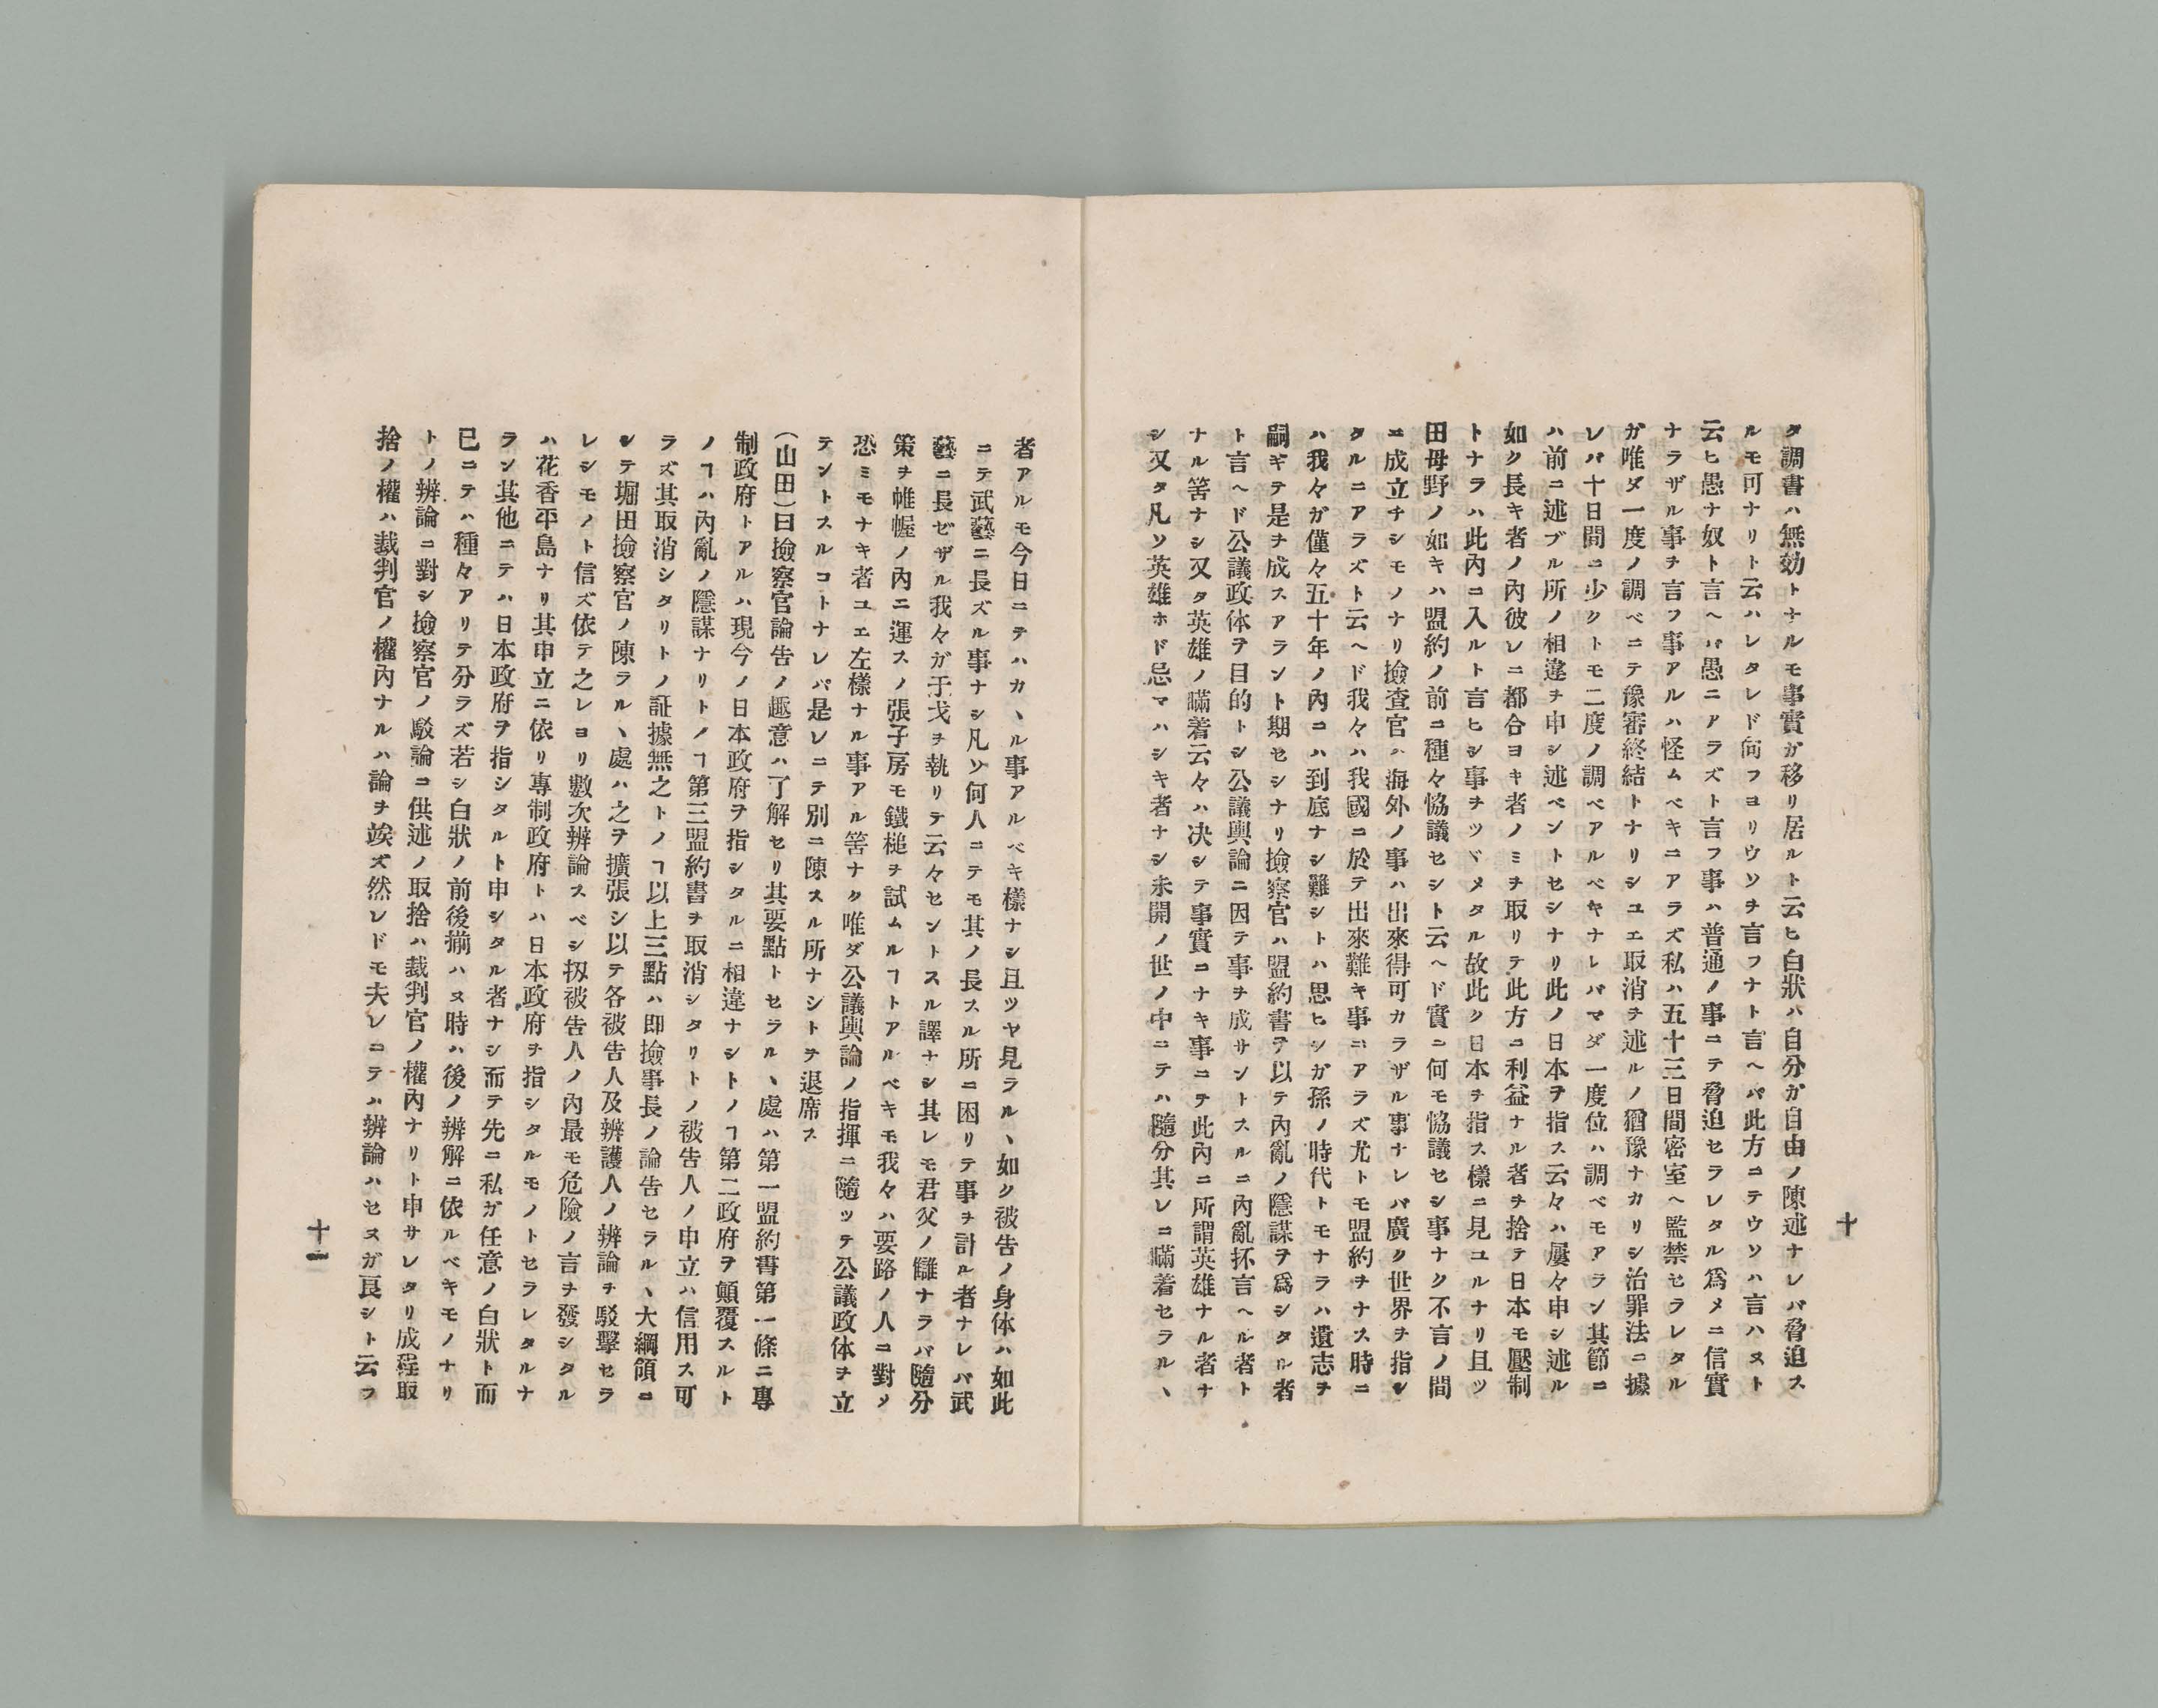 十
タ調書ハ無効トナルモ事實ガ移リ居ルト云ヒ白狀ハ自分ガ自由ノ陳述ナレバ脅迫ス
ルモ可ナリト云ハレタレド何フヨリウソヲ言フナト言ヘバ此方ニテウソハ言ハヌト
云ヒ愚ナ奴ト言ヘバ愚ニアラズト言フ事ハ普通ノ事ニテ脅迫セラレタル爲メニ信實
ナラザル事ヲ言フ事アルハ怪ムベキニアラズ私ハ五十三日間密室ヘ監禁セラレタル
ガ唯ダ一度ノ調ベニテ豫審終結トナリシユエ取消ヲ述ルノ猶豫ナカリシ治罪法ニ據
レバ十日間ニ少クトモ二度ノ調ベアルベキナレバマダ一度位ハ調ベモアラン其節ニ
ハ前ニ述ブル所ノ相違ヲ申シ述ベントセシナリ此ノ日本ヲ指ス云々ハ屢々申シ述ル
如ク長キ者ノ內彼レニ都合ヨキ者ノミヲ取リテ此方ニ利益ナル者ヲ捨テ日本モ壓制
トナラハ此內ニ入ルト言ヒシ事ヲツヾメタル故此ク日本ヲ指ス樣ニ見ユルナリ且ツ
田母野ノ如キハ盟約ノ前ニ種々恊議セシト云ヘド實ニ何モ恊議セシ事ナク不言ノ間
ニ成立チシモノナリ撿查官ハ海外ノ事ハ出來得可カラザル事ナレバ廣ク世界ヲ指シ
タルニアラズト云ヘド我々ハ我國ニ於テ出來難キ事ニアラズ尤トモ盟約ヲナス時ニ
ハ我々ガ僅々五十年ノ內ニハ到底ナシ難シトハ思ヒシガ孫ノ時代トモナラハ遺志ヲ
嗣ギテ是ヲ成スアラント期セシナリ撿察官ハ盟約書ヲ以テ內亂ノ隱謀ヲ爲シタル者
ト言ヘド公議政体ヲ目的トシ公議輿論ニ因テ事ヲ成サントスルニ內亂抔言ヘル者ト
ナル筈ナシ又タ英雄ノ瞞着云々ハ决シテ事實ニナキ事ニテ此內ニ所謂英雄ナル者ナ
シ又タ凡ソ英雄ホド忌マハシキ者ナシ未開ノ世ノ中ニテハ隨分其レニ瞞着セラルヽ
者アルモ今日ニテハカヽル事アルベキ樣ナシ且ツヤ見ラルヽ如ク被告ノ身体ハ如此
ニテ武藝ニ長ズル事ナシ凡ソ何人ニテモ其ノ長スル所ニ因リテ事ヲ計ル者ナレバ武
藝ニ長ゼザル我々ガ于戈ヲ執リテ云々セントスル譯ナシ其レモ君父ノ讎ナラバ隨分
策ヲ帷幄ノ內ニ運スノ張子房モ鐵槌ヲ試ムルヿトアルベキモ我々ハ要路ノ人ニ對シ
恐ミモナキ者ユエ左樣ナル事アル筈ナク唯ダ公議輿論ノ指揮ニ隨ツテ公議政体ヲ立
テントスルコトナレバ是レニテ別ニ陳スル所ナシトヲ退席ス
（山田）曰撿察官論告ノ趣意ハ了解セリ其要點トセラルヽ處ハ第一盟約書第一條ニ專
制政府トアルハ現今ノ日本政府ヲ指シタルニ相違ナシトノヿ第二政府ヲ顚覆スルト
ノヿハ內亂ノ隱謀ナリトノヿ第三盟約書ヲ取消シタリトノ被告人ノ申立ハ信用ス可
ラズ其取消シタリトノ証據無之トノヿ以上三點ハ即撿事長ノ論告セラルヽ大綱領ニ
シテ堀田撿察官ノ陳ラルヽ處ハ之ヲ擴張シ以テ各被告人及辨護人ノ辨論ヲ駁擊セラ
レシモノト信ズ依テ之レヨリ數次辨論スベシ扨被告人ノ內最モ危險ノ言ヲ發シタル
ハ花香平島ナリ其申立ニ依リ專制政府トハ日本政府ヲ指シタルモノトセラレタルナ
ラン其他ニテハ日本政府ヲ指シタルト申シタル者ナシ而テ先ニ私ガ任意ノ白狀ト而
已ニテハ種々アリテ分ラズ若シ白狀ノ前後揃ハヌ時ハ後ノ辨解ニ依ルベキモノナリ
トノ辨論ニ對シ撿察官ノ駁論ニ供述ノ取捨ハ裁判官ノ權內ナリト申サレタリ成程取
捨ノ權ハ裁判官ノ權內ナルハ論ヲ竢ズ然レドモ夫レニテハ辨論ハセヌガ良シト云フ
十一